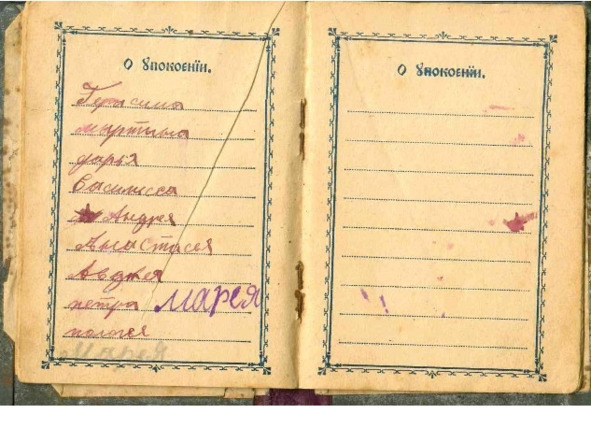 О Упокоенїи.
Герасима
мартина
дарья
Василисса
Андрея
Анастасея
Авдея
петра марея
Мария
О Упокоенїи.